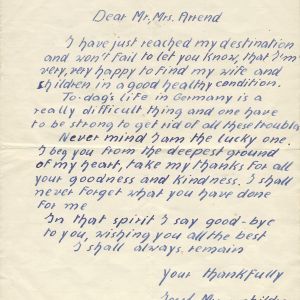 Dear Mr, Mrs. Arrend
I have just reached my destination
and won't fail to let you know, that I'm
very, very happy to find my wife and
children in a good healthy condition.
To-day's life in Germany is a
really difficult thing and one have
to be strong to get rid of all these troubles
Never mind I am the lucky one.
I beg you from the deepest ground
of my heart, take my thanks for all
your goodness and kindness. I shall
never forget what you have done
for me
In that spirit I say good-bye
to you, wishing you all the best
I shall always remain
your thankfully